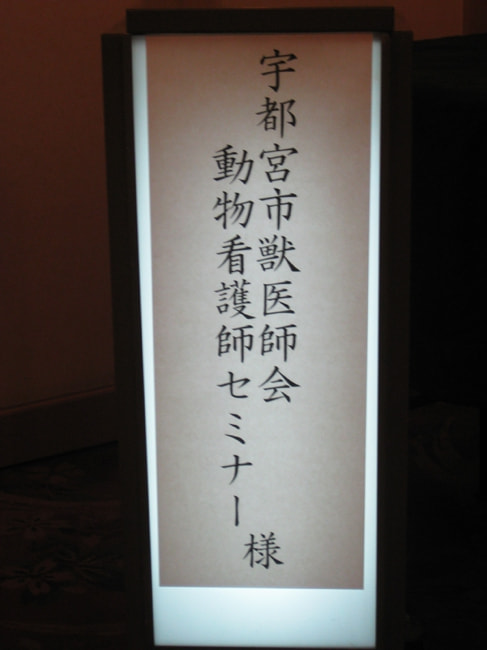 宇都宮市獣医師会
動物看護師セミナー
様